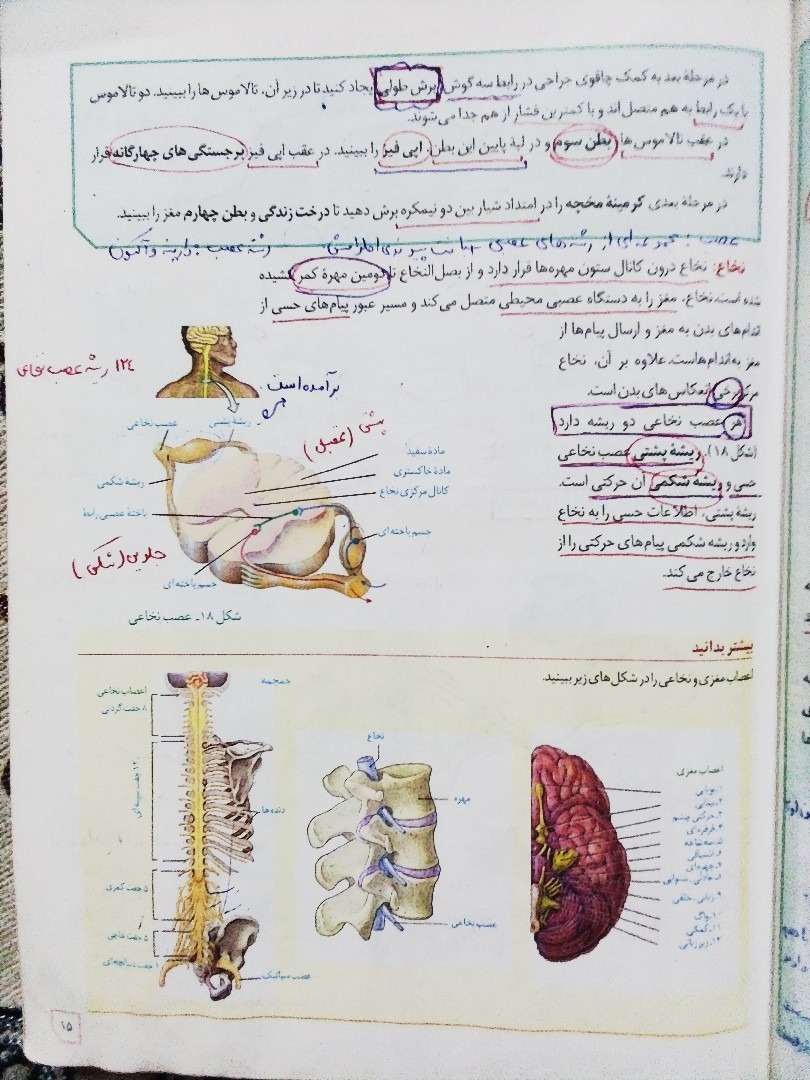 در مرحلهٔ بعد به کمک چاقوی جراحی در رابط سه گوش، برش طولی ایجاد کنید تا در زیر آن، تالاموس ها را ببینید. دو تالاموس
با یک رابط به هم متصل اند و با کمترین فشار از هم جدا می‌شوند.
در عقب تالاموس ها، بطن سوم و در لبهٔ پایین این بطن، اپی فیز را ببینید. در عقب اپی فیز برجستگی های چهارگانه قرار
دارند.
در مرحلهٔ بعدی کرمینهٔ مخچه را در امتداد شیار بین دو نیمکره برش دهید تا درخت زندگی و بطن چهارم مغز را ببینید.
عصب : مجموعه ای از رشته های عصبی
رشته عصب : دارینه و آکسون
نخاع: نخاع درون کانال ستون مهره‌ها قرار دارد و از بصل النخاع تا دومین مهرهٔ کمر کشیده
شده است. نخاع، مغز را به دستگاه عصبی محیطی متصل می‌کند و مسیر عبور پیام‌های حسی از
اندام‌های بدن به مغز و ارسال پیام‌ها از
مغز به اندام‌هاست. علاوه بر آن، نخاع
مرکز برخی انعکاس های بدن است.
هر عصب نخاعی دو ریشه دارد
(شکل ۱۸). ریشهٔ پشتی عصب نخاعی
حسی و ریشهٔ شکمی آن حرکتی است.
ریشهٔ پشتی، اطلاعات حسی را به نخاع
وارد و ریشه شکمی پیام‌های حرکتی را از
نخاع خارج می کند.
۱۲۴ ریشه عصب نخاعی
برآمده است
پشتی (عقبی)
جلویی (شکمی)
عصب نخاعی
ریشهٔ پشتی
ریشهٔ شکمی
یاختهٔ عصبی رابط
مادهٔ سفید
مادهٔ خاکستری
کانال مرکزی نخاع
جسم یاخته ای
جسم یاخته ای
شکل ۱۸ـ عصب نخاعی
بیشتر بدانید
اعصاب مغزی و نخاعی را در شکل های زیر ببینید.
اعصاب مغزی
۱ـ بویایی
۲ـ بینایی
۳ـ حرکتی چشم
۴ـ قرقره‌ای
۵ـ سه شاخه
۶ـ اشتیاقی
۷ـ چهره‌ای
۸ـ تعادلی ـ شنوایی
۹ـ زبانی ـ حلقی
۱۰ـ واگ
۱۱ـ کمکی
۱۲ـ زیر زبانی
نخاع
مهره
عصب نخاعی
جمجمه
اعصاب نخاعی
۸ جفت گردنی
۱۲ جفت سینه‌ای
دنده‌ها
۵ جفت کمری
۵ جفت خاجی
۱ جفت دنبالچه‌ای
عصب سیاتیک
۱۵